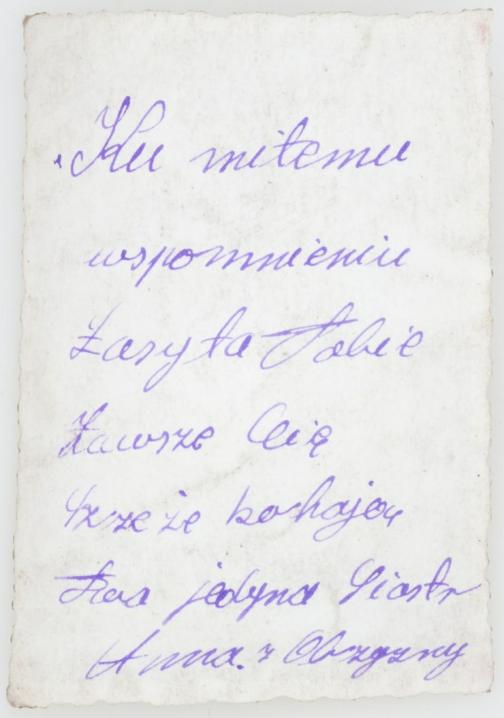 Ku miłemu
wspomnieniu
Zasyła Tobie
Zawsze Cię
Szczeże kochająca
Twa jedyna Siostr
Anna z